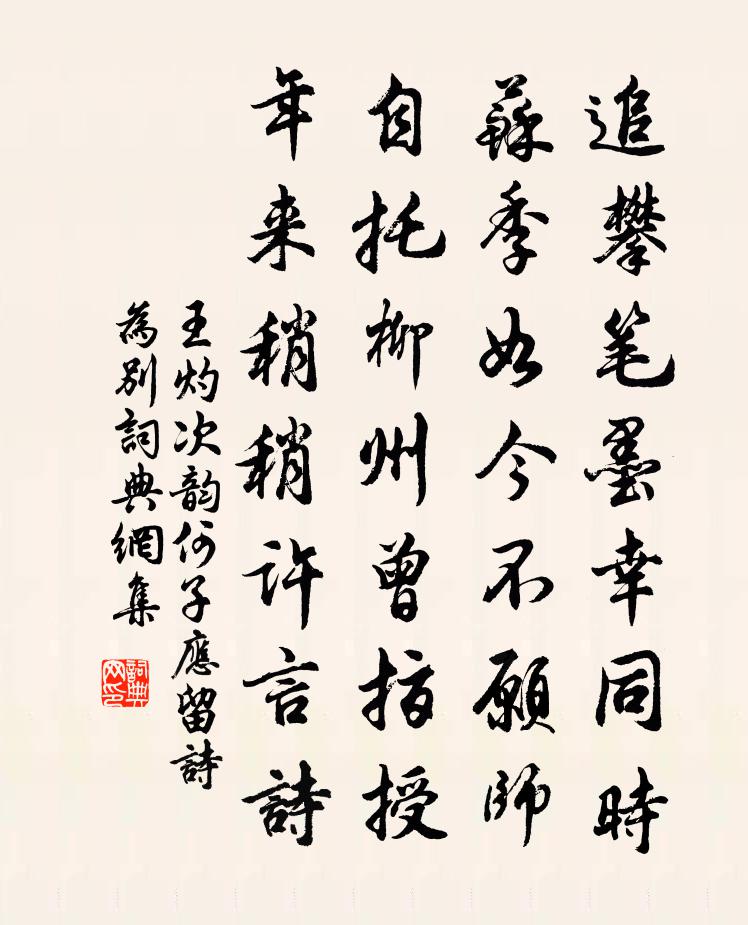 追攀笔墨幸同時
蘇季如今不願師
自托柳州曾指授
年来稍稍許言詩
王灼次韵何子應留詩
為别詞典網集
詞典网印